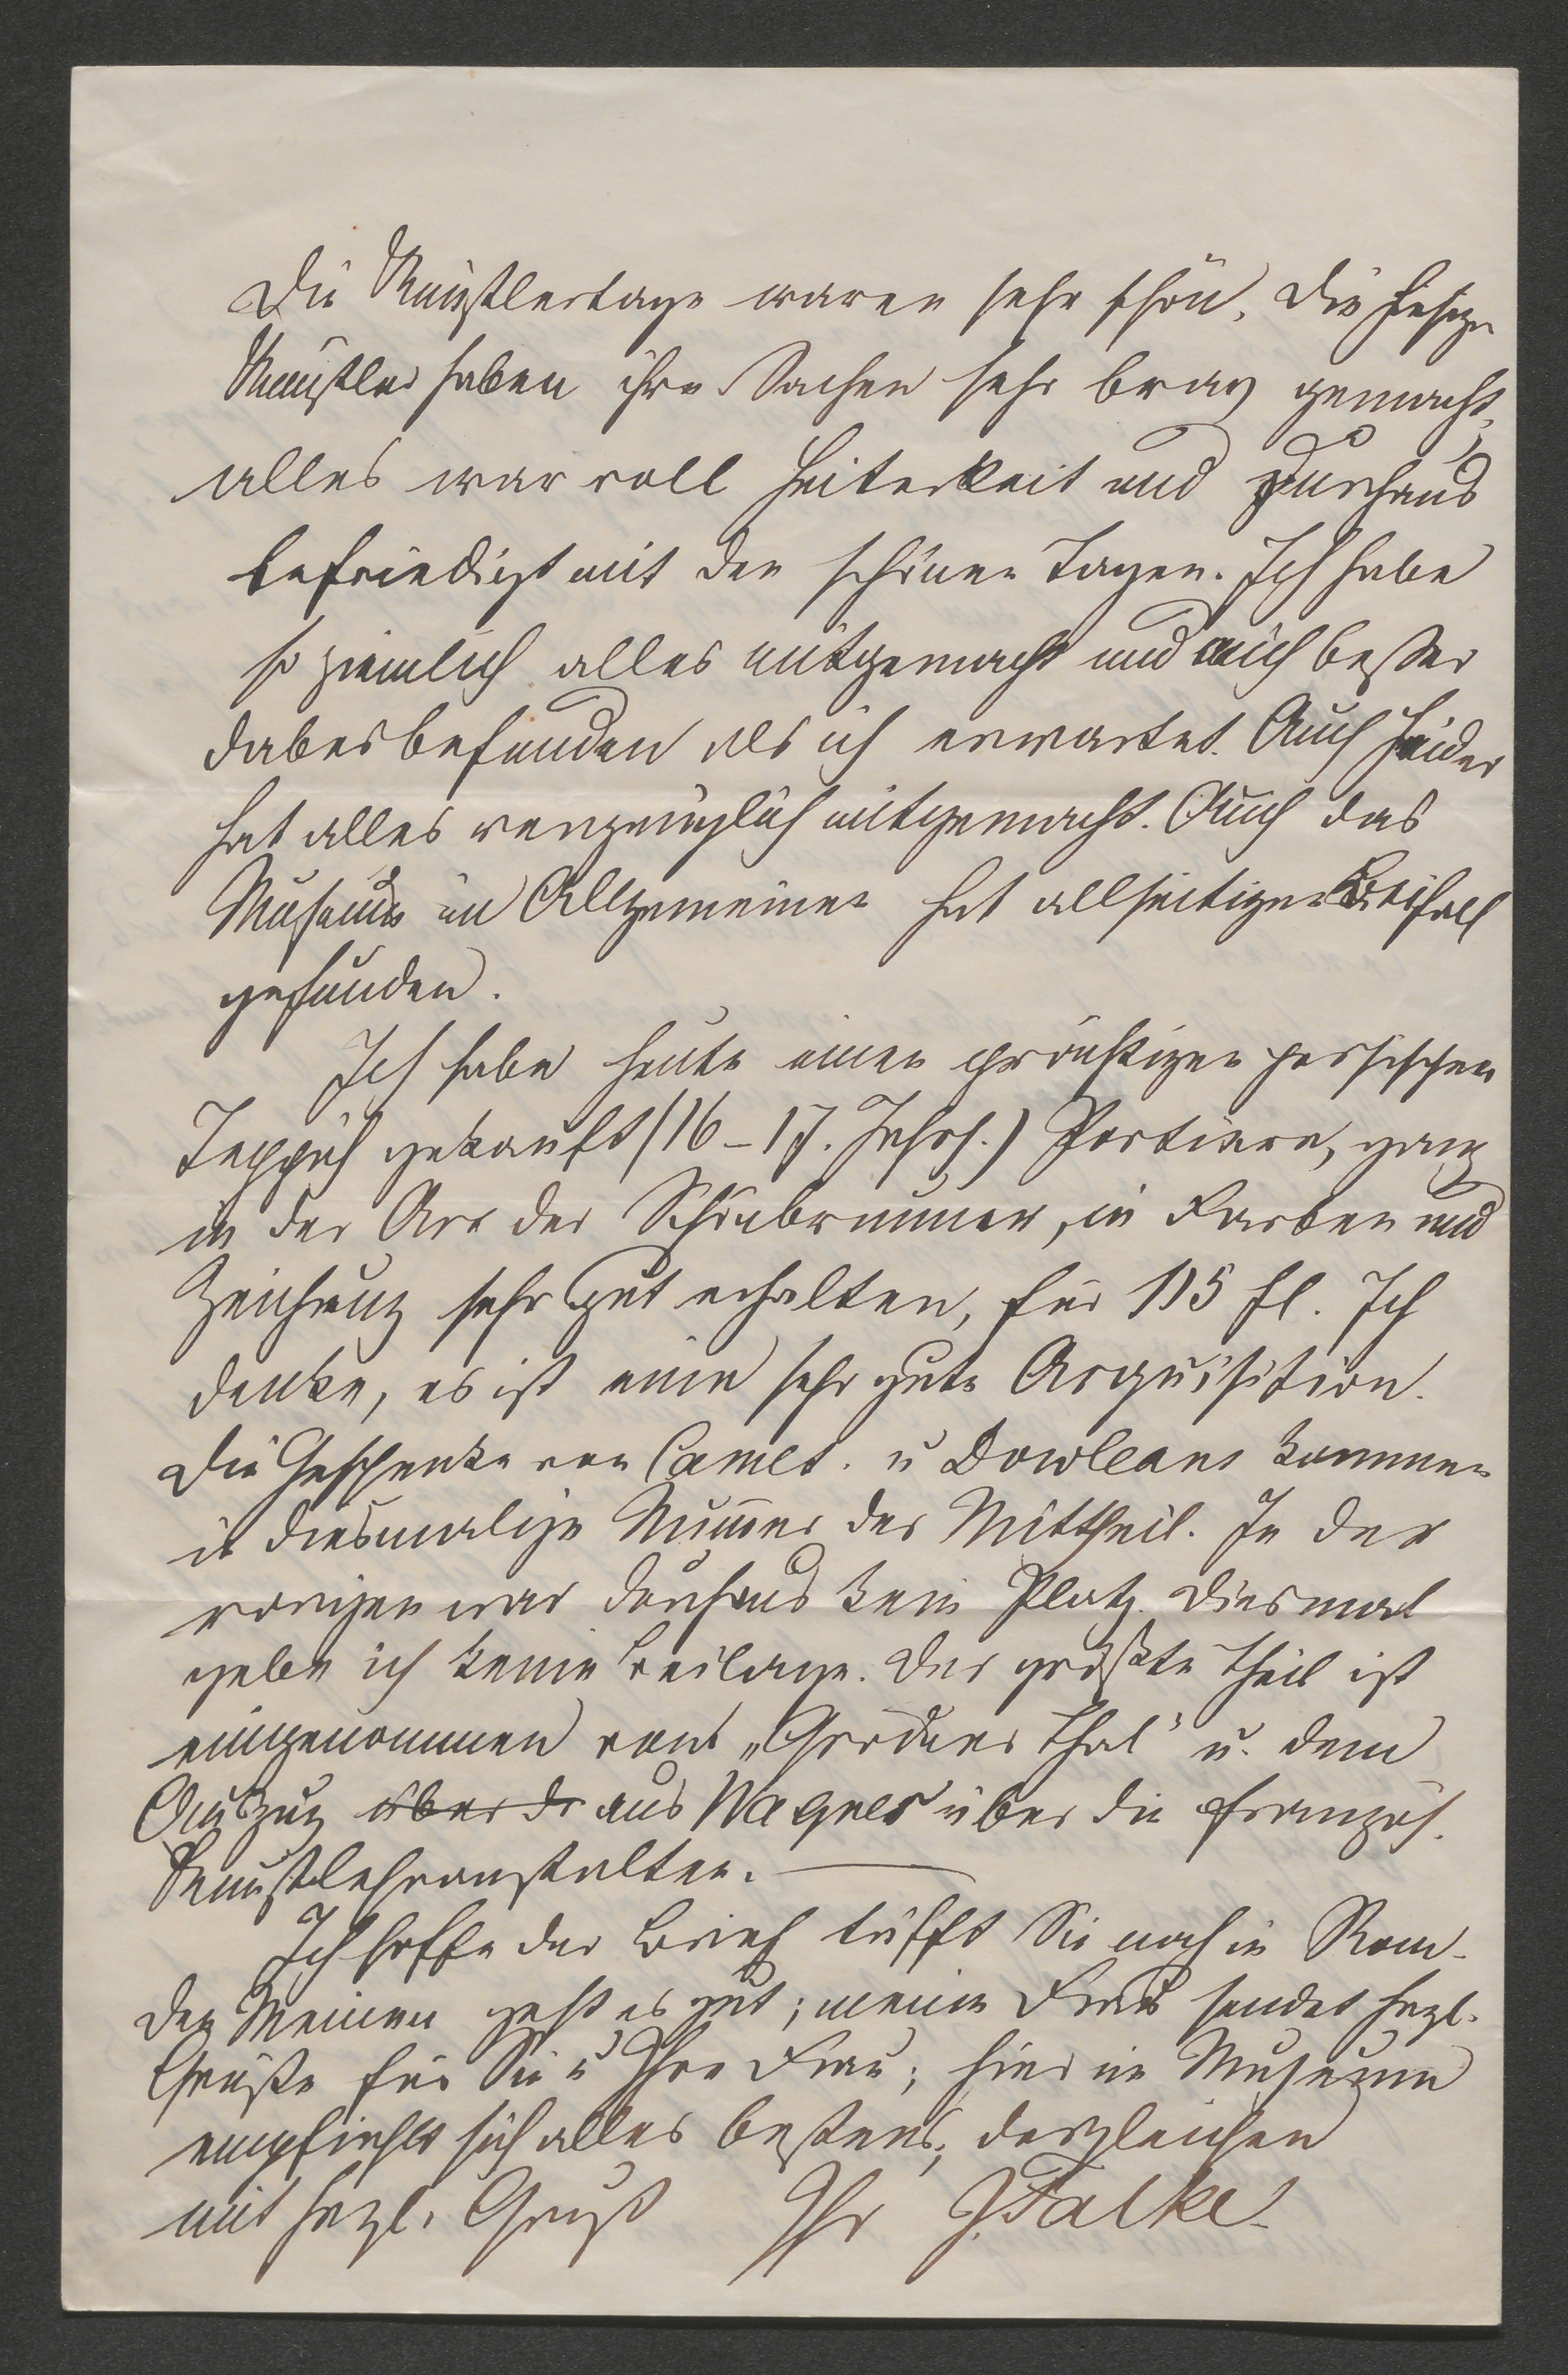 Die Künstlertage waren sehr schön. Die hiesige
Künstler haben ihre Sachen sehr brav gemacht,
alles war voll Heiterkeit und durchaus
befriedigt mit den schönen Tagen. Ich habe
so ziemlich alles mitgemacht und mich besser
dabei befunden als ich erwartet. Auch Heider
hat alles vergnüglich mitgemacht. Auch das
Museum im Allgemeinen hat allseitigen Beifall
gefunden.
Ich habe heute einen prächtigen persischen
Teppich gekauft (16–17. Jahrh.) Portiere, ganz
in der Art der Schönbrunner, in Farben und
Zeichnung sehr gut erhalten, für 115 fl. Ich
denke, es ist eine sehr gute Acquisition.
Die Geschenke von Camet. u Dowleans kommen
in diesmalige Num̄er der Mittheil. In der
vorigen war durchaus kein Platz. Diesmal
gebe ich keine Beilage. Der größte Theil ist
eingenommen vom „Grödner Thal" u. dem
Auszug über d aus Wagner über die französ.
Kunstlehranstalten. —
Ich hoffe der Brief trifft Sie noch in Rom.
Den Meinen geht es gut; meine Frau sendet herzl.
Grüße für Sie u Ihre Frau; hier im Museum
empfiehlt sich alles bestens, desgleichen
mit herzl. Gruß Ihr J. Falke